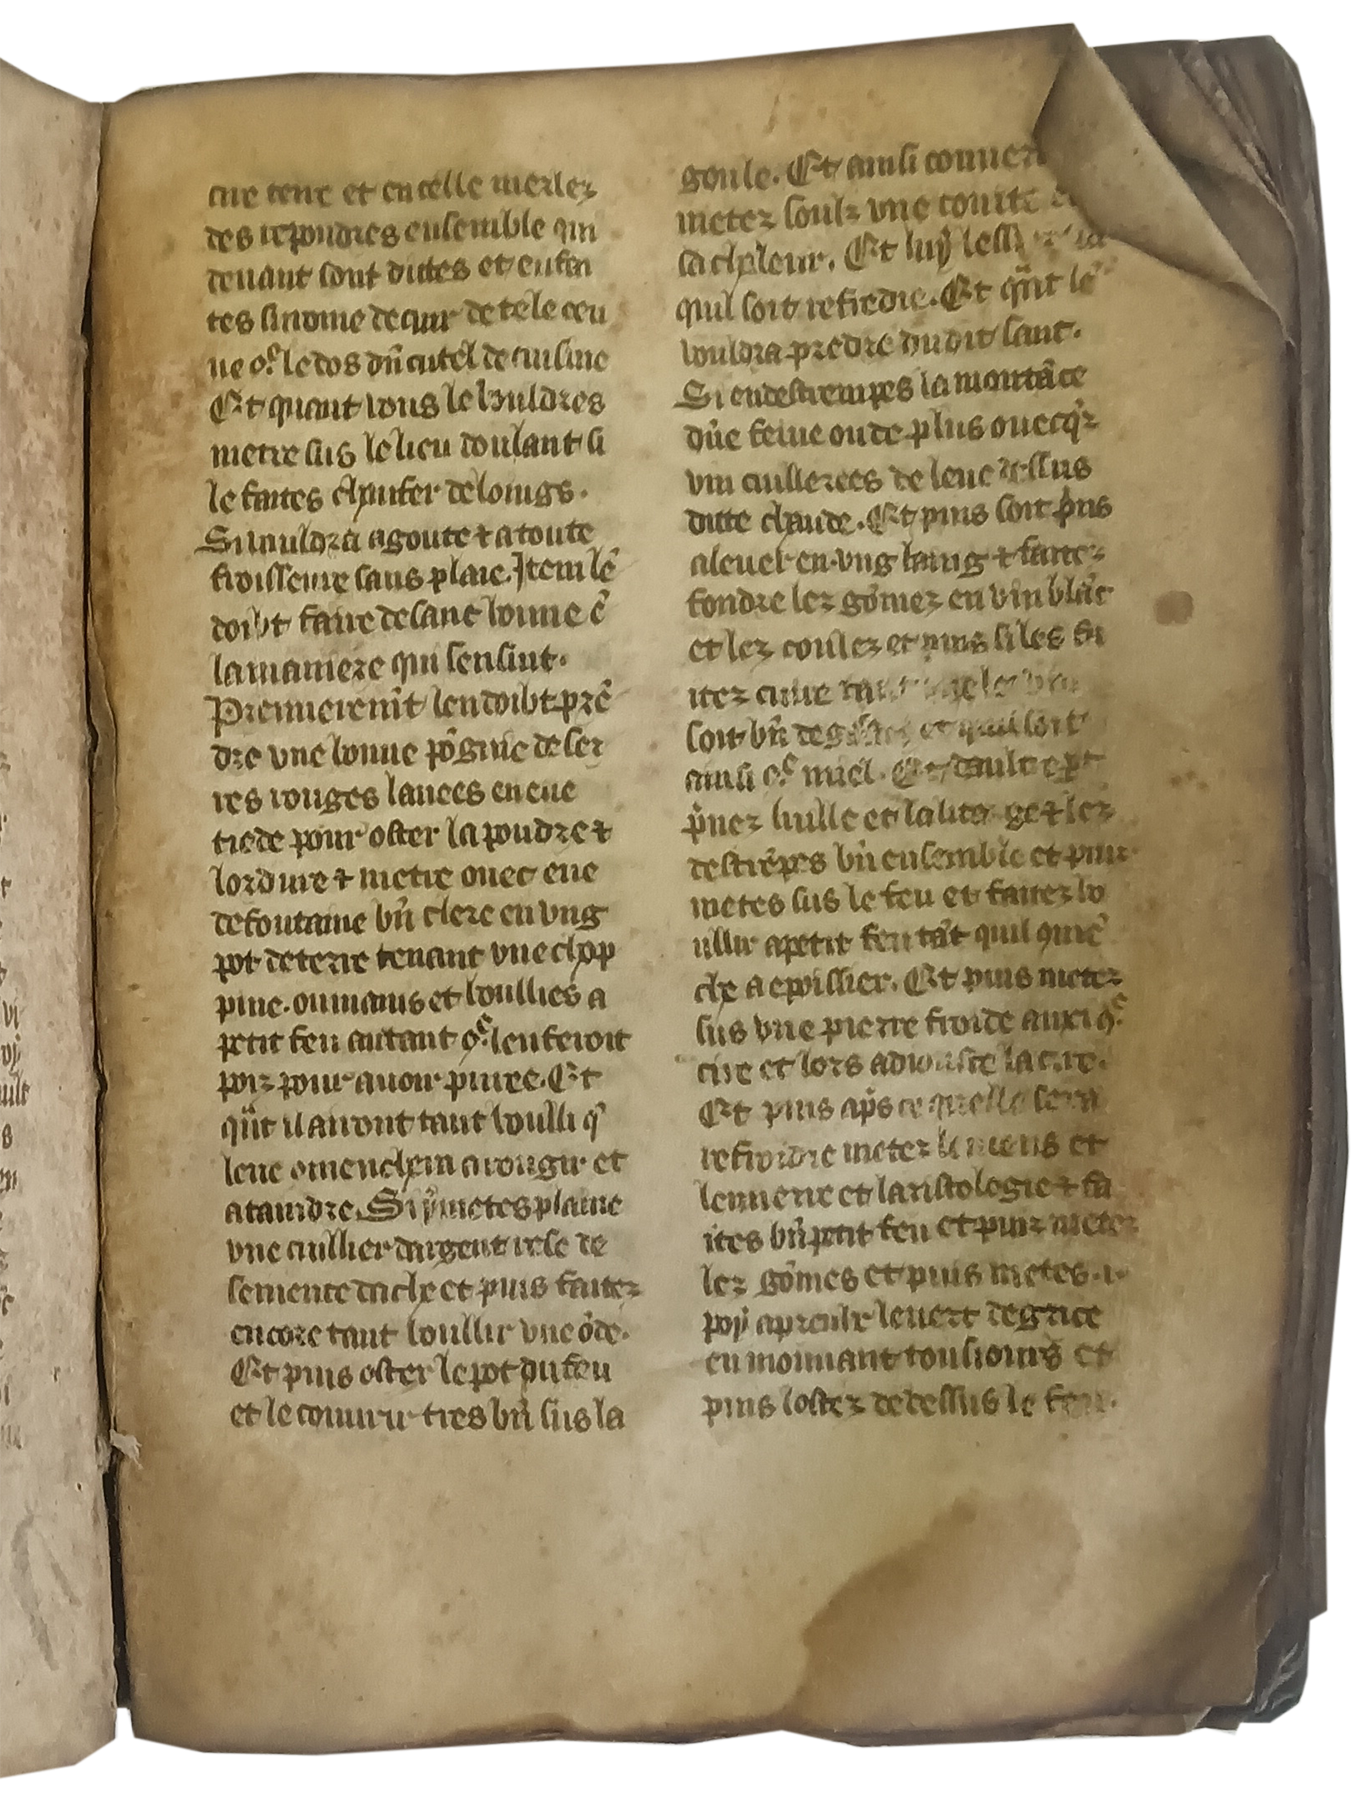 cue terre et en celle merlez
des .. poudres ensemble qui
deuant sont dittes et en fin
tes sinome de cuir de tele ceu
ne ꝯ le dos dũ cutel de cuisine
Et quant vous le vouldres
metre sus le lieu doulant si
le faites chaufer de loings.
Si vauldra a goute ⁊ a toute
froisseure sans plaie. Item lẽ
doibt faire de sanc lomme ẽ
la maniere qui sensiut.
Premierem̃t len doibt prẽ
dre vne bonne põgnie de ser
res rouges lauees en eue
tiede pour oster la poudre ⁊
lordure ⁊ metre ouec eue
de fontaine bñ clere en vng
pot de terre tenant vne chop
pine. ou mains et boullies a
petit feu autant ꝯ len feroit
poiz pour auoir puree. Et
qũt il auront tant boulli q̃
leue omenchera a rougir et
ataindre. Si ỹ metes plaine
vne cullier dargent rese de
semence dache et puis faitez
encore tant boullir vne õde.
Et puis oster le pot du feu
et le couurir tres bñ sus la
goule. Et ainsi couuert
metez soulz vne couite
sa chaleur. Et luy less
quil soit refredie. Et qũt lẽ
vouldra predre dudit sanc.
Si en destrempes la montãce
dũe feue ou de plus ouecq̃z
viii cullerees de leue dessus
ditte chaude. Et puis soit p̃ns
a leuer en vng baing ⁊ faitez
fondre lez gõmez en vin blãc
et lez coulez et puis si les fa
itez cuire tant
soit bñ degastes et quil soit
ainsi ꝯ miel. Et daultre part
p̃nez huille et la litarge ⁊ lez
destrẽpes bñ ensemble et puis
metes sus le feu et faitez bo
ullir a petit feu tãt quil quiẽ
che a epissier. Et puis metez
sus vne pierre froide auxi ꝯ
cire et lors adiouste la cire.
Et puis ap̃s ce quelle sera
refroidie metez lenciens et
le mirre et laristologie ⁊ fa
ites bñ petit feu et puiz metez
lez gõmes et puis metes .i.
poỹ apreulx le vert de grice
en mouuant tousiours et
puis lostez de dessus le feu.